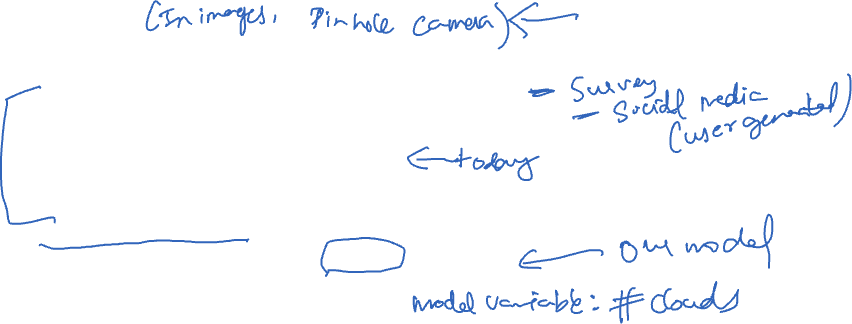 (In images, Pinhole camera) ←
- Survey
- Social media
(user generated)
← today
← our model
model variable: # clouds